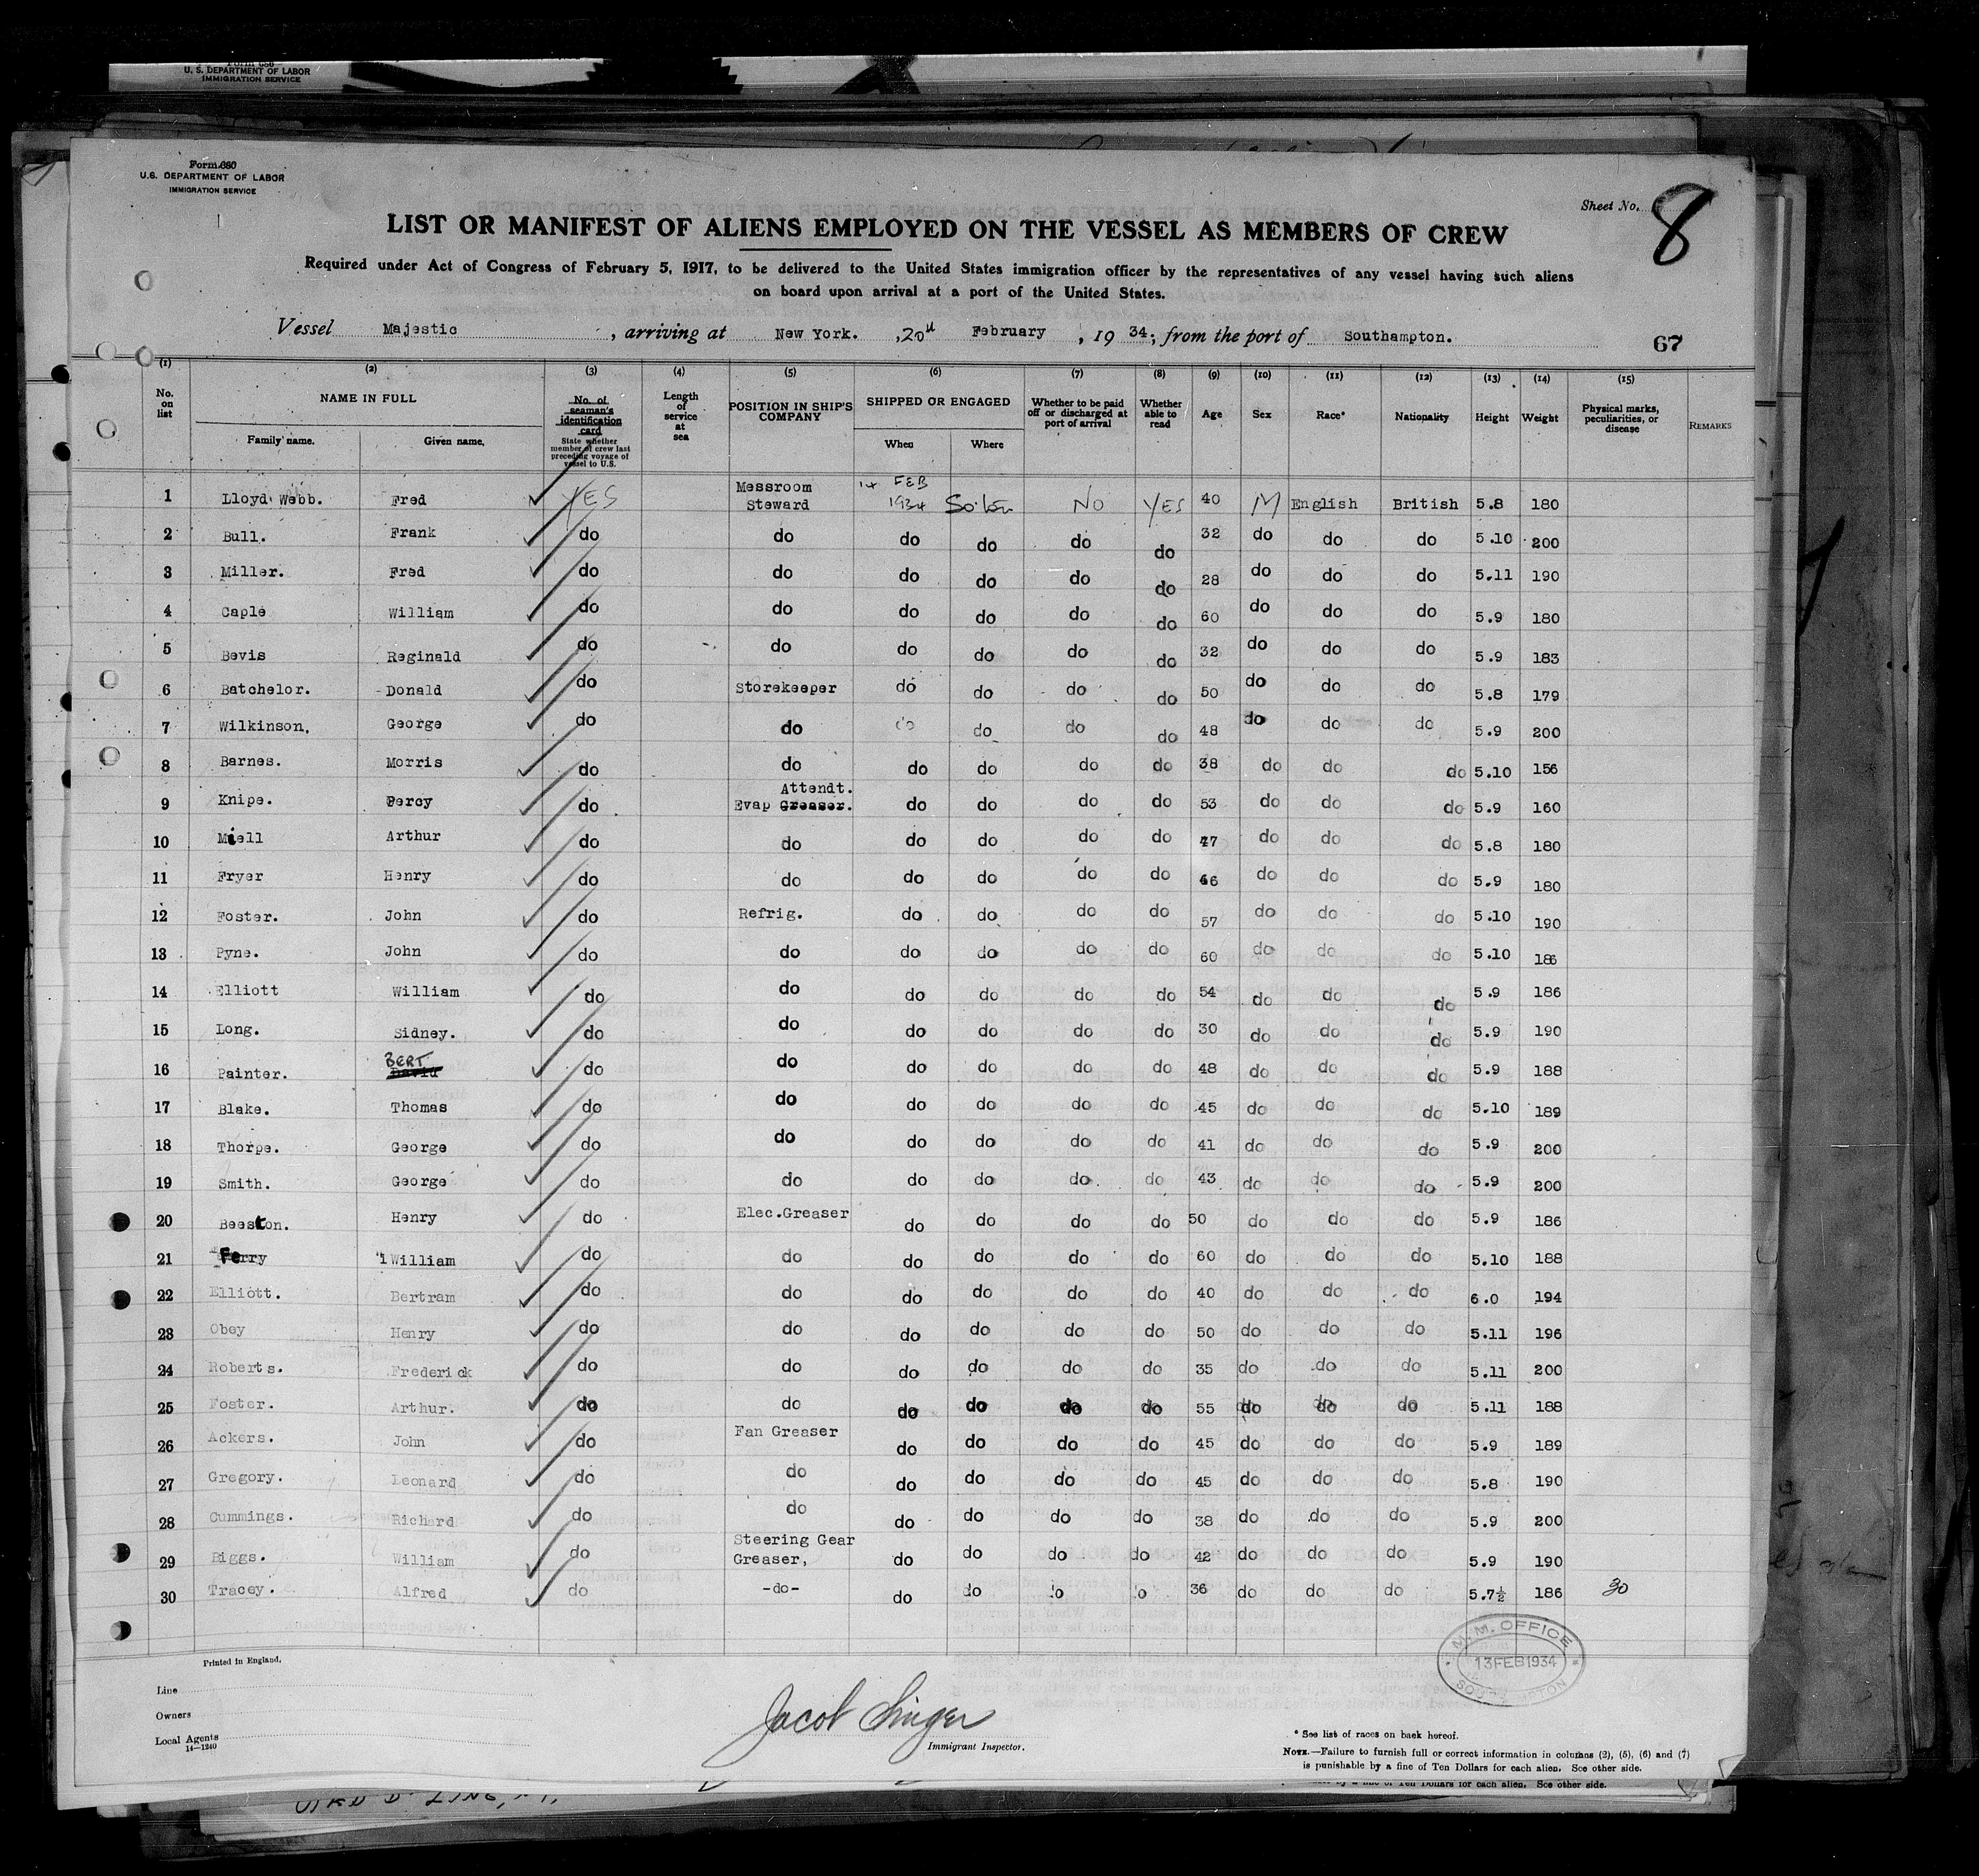 Form 686
U. S. DEPARTMENT OF LABOR
IMMIGRATION SERVICE
Form 680
U.S. DEPARTMENT OF LABOR
IMMIGRATION SERVICE
Sheet No. 8
LIST OR MANIFEST OF ALIENS EMPLOYED ON THE VESSEL AS MEMBERS OF CREW
Required under Act of Congress of February 5, 1917, to be delivered to the United States immigration officer by the representatives of any vessel having such aliens
on board upon arrival at a port of the United States.
Vessel Majestic, arriving at New York. , 20th February, 19 34; from the port of Southampton.
67
(1) (2) (3) (4) (5) (6) (7) (8) (9) (10) (11) (12) (13) (14) (15)
No. on list NAME IN FULL Family name. Given name. No. of seaman's identification card State whether member of crew last preceding voyage of vessel to U.S. Length of service at sea POSITION IN SHIP'S COMPANY SHIPPED OR ENGAGED When Where Whether to be paid off or discharged at port of arrival Whether able to read Age Sex Race* Nationality Height Weight Physical marks, peculiarities, or disease REMARKS
1 Lloyd Webb. Fred YES Messroom Steward 14 FEB 1934 So'ton NO YES 40 M English British 5.8 180
2 Bull. Frank do do do do do do 32 do do do 5.10 200
3 Miller. Fred do do do do do do 28 do do do 5.11 190
4 Caple William do do do do do do 60 do do do 5.9 180
5 Bevis Reginald do do do do do do 32 do do do 5.9 183
6 Batchelor. Donald do Storekeeper do do do do 50 do do do 5.8 179
7 Wilkinson. George do do do do do do 48 do do do 5.9 200
8 Barnes. Morris do do do do do do 38 do do do 5.10 156
9 Knipe. Percy do Evap Greaser. Attendt. do do do do 53 do do do 5.9 160
10 Miell Arthur do do do do do do 47 do do do 5.8 180
11 Fryer Henry do do do do do do 46 do do do 5.9 180
12 Foster. John do Refrig. do do do do 57 do do do 5.10 190
13 Pyne. John do do do do do do 60 do do do 5.10 186
14 Elliott William do do do do do do 54 do do do 5.9 186
15 Long. Sidney. do do do do do do 30 do do do 5.9 190
16 Painter. David BERT do do do do do do 48 do do do 5.9 188
17 Blake. Thomas do do do do do do 45 do do do 5.10 189
18 Thorpe. George do do do do do do 41 do do do 5.9 200
19 Smith. George do do do do do do 43 do do do 5.9 200
20 Beeston. Henry do Elec.Greaser do do do do 50 do do do 5.9 186
21 Ferry William do do do do do do 60 do do do 5.10 188
22 Elliott. Bertram do do do do do do 40 do do do 6.0 194
23 Obey Henry do do do do do do 50 do do do 5.11 196
24 Roberts. Frederick do do do do do do 35 do do do 5.11 200
25 Foster. Arthur. do do do do do do 55 do do do 5.11 188
26 Ackers. John do Fan Greaser do do do do 45 do do do 5.9 189
27 Gregory. Leonard do do do do do do 45 do do do 5.8 190
28 Cummings. Richard do do do do do do 38 do do do 5.9 200
29 Biggs. William do Steering Gear Greaser, do do do do 42 do do do 5.9 190
30 Tracey. Alfred do -do- do do do do 36 do do do 5.7½ 186 30
M.M. OFFICE
13 FEB 1934
SOUTHAMPTON
Printed in England.
Line
Owners
Local Agents
14—1240
Jacob Singer
Immigrant Inspector.
* See list of races on back hereof.
NOTE.—Failure to furnish full or correct information in columns (2), (5), (6) and (7)
is punishable by a fine of Ten Dollars for each alien. See other side.
by a fine of Ten Dollars for each alien. See other side.